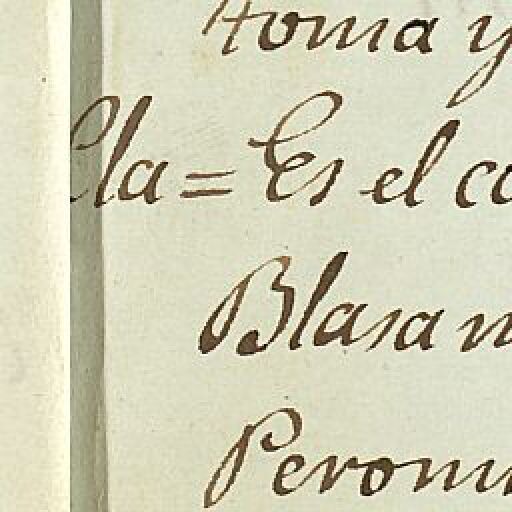 toma y
Cla = Es el co
Blasa n
Perom